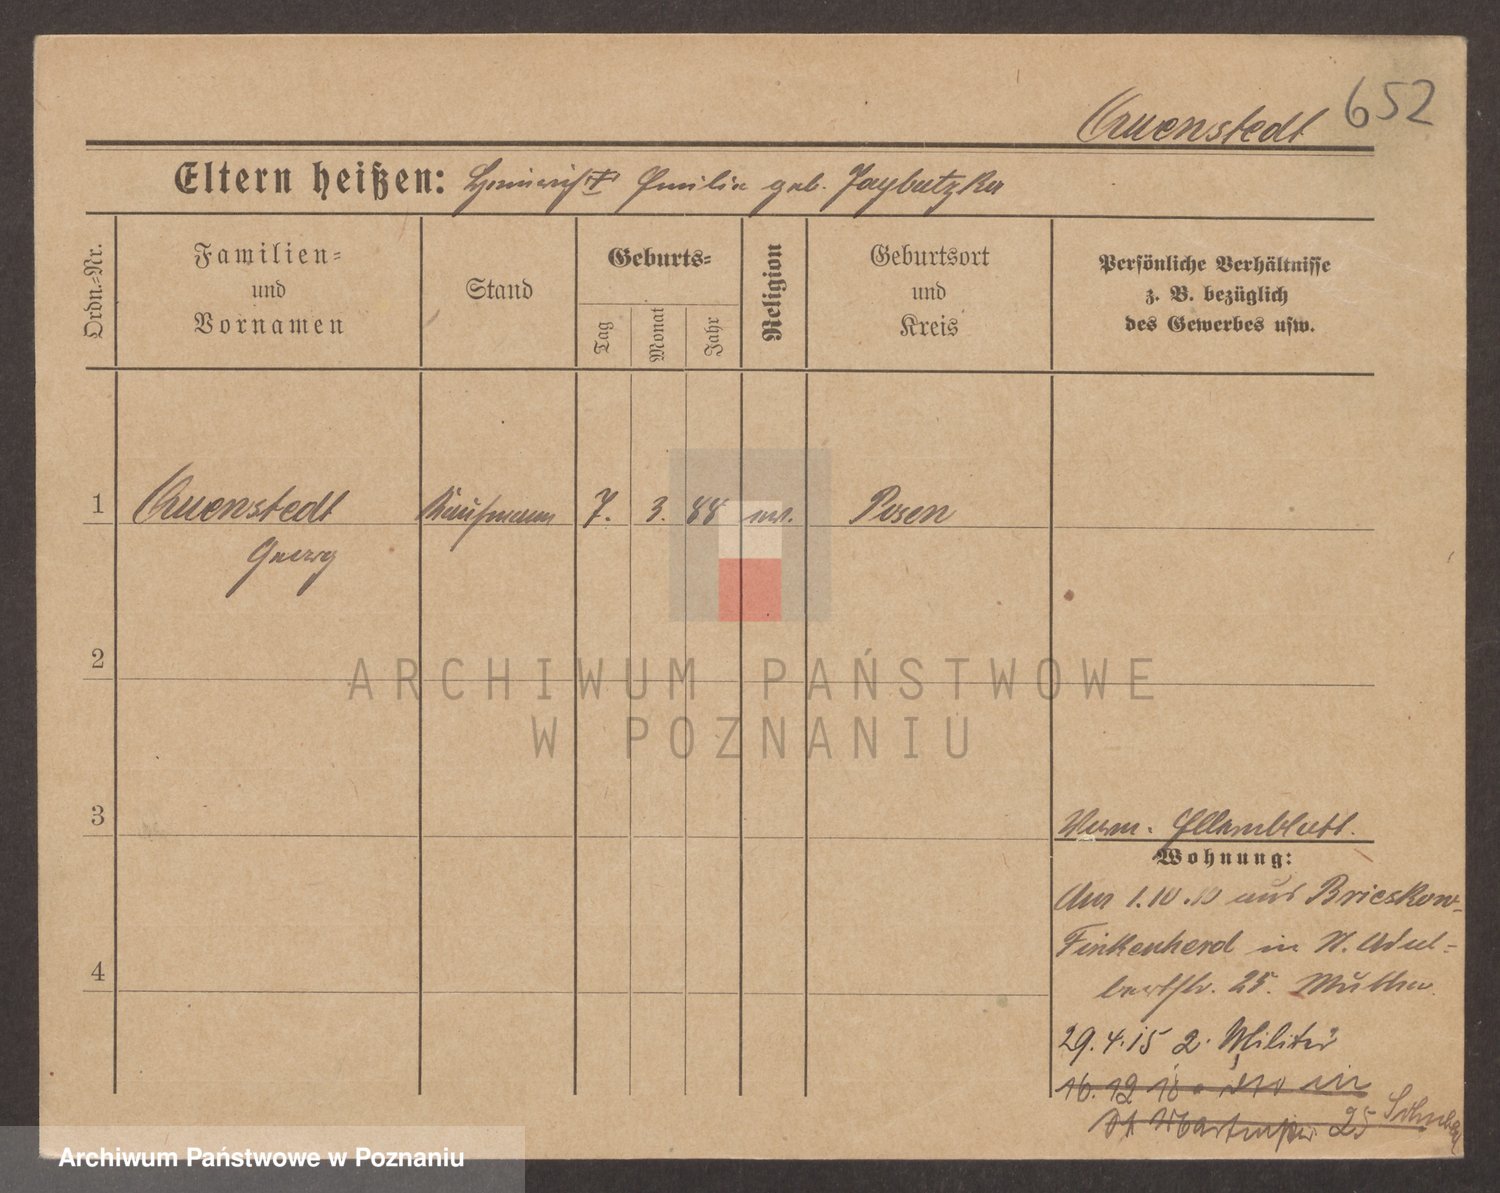 Quenstedt 652
Eltern heißen: Heinrich Emilie geb.
Ordn.-Nr.
Familien=
und
Vornamen
Stand
Geburts=
Tag
Monat
Jahr
Religion
Geburtsort
und
Kreis
Persönliche Verhältnisse
z. B. bezüglich
des Gewerbes usw.
1 Quenstedt Kaufmann 7. 3. 88 Posen
Georg
2
3
4
Verm. Elternblatt.
Wohnung:
Am 1.10.10 aus Brieskow-
Finkenherd in St. Adal=
bertstr. 25. Mutter.
29.4.15 z. Militär
16. 12 18 in
St 25
ARCHIWUM PAŃSTWOWE
W POZNANIU
Archiwum Państwowe w Poznaniu